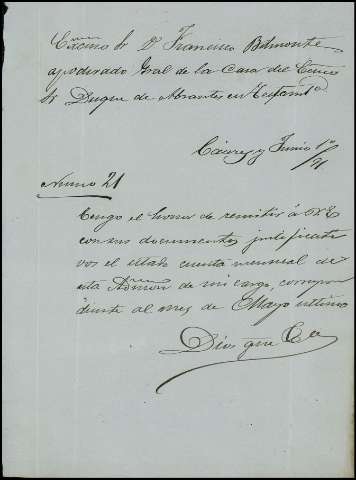 Excmo Sr D Francisco Belmonte
apoderado Gral de la Casa del Excmo
Sr Duque de Abrantes en Extremª
Cáceres y Junio 1º/71.
Numo 21
Tengo el honor de remitir á V.E
con sus documentos justificati
vos el estado cuenta mensual de
esta Admon de mi cargo, correspon
diente al mes de Mayo ultimo
Dios gue Ca